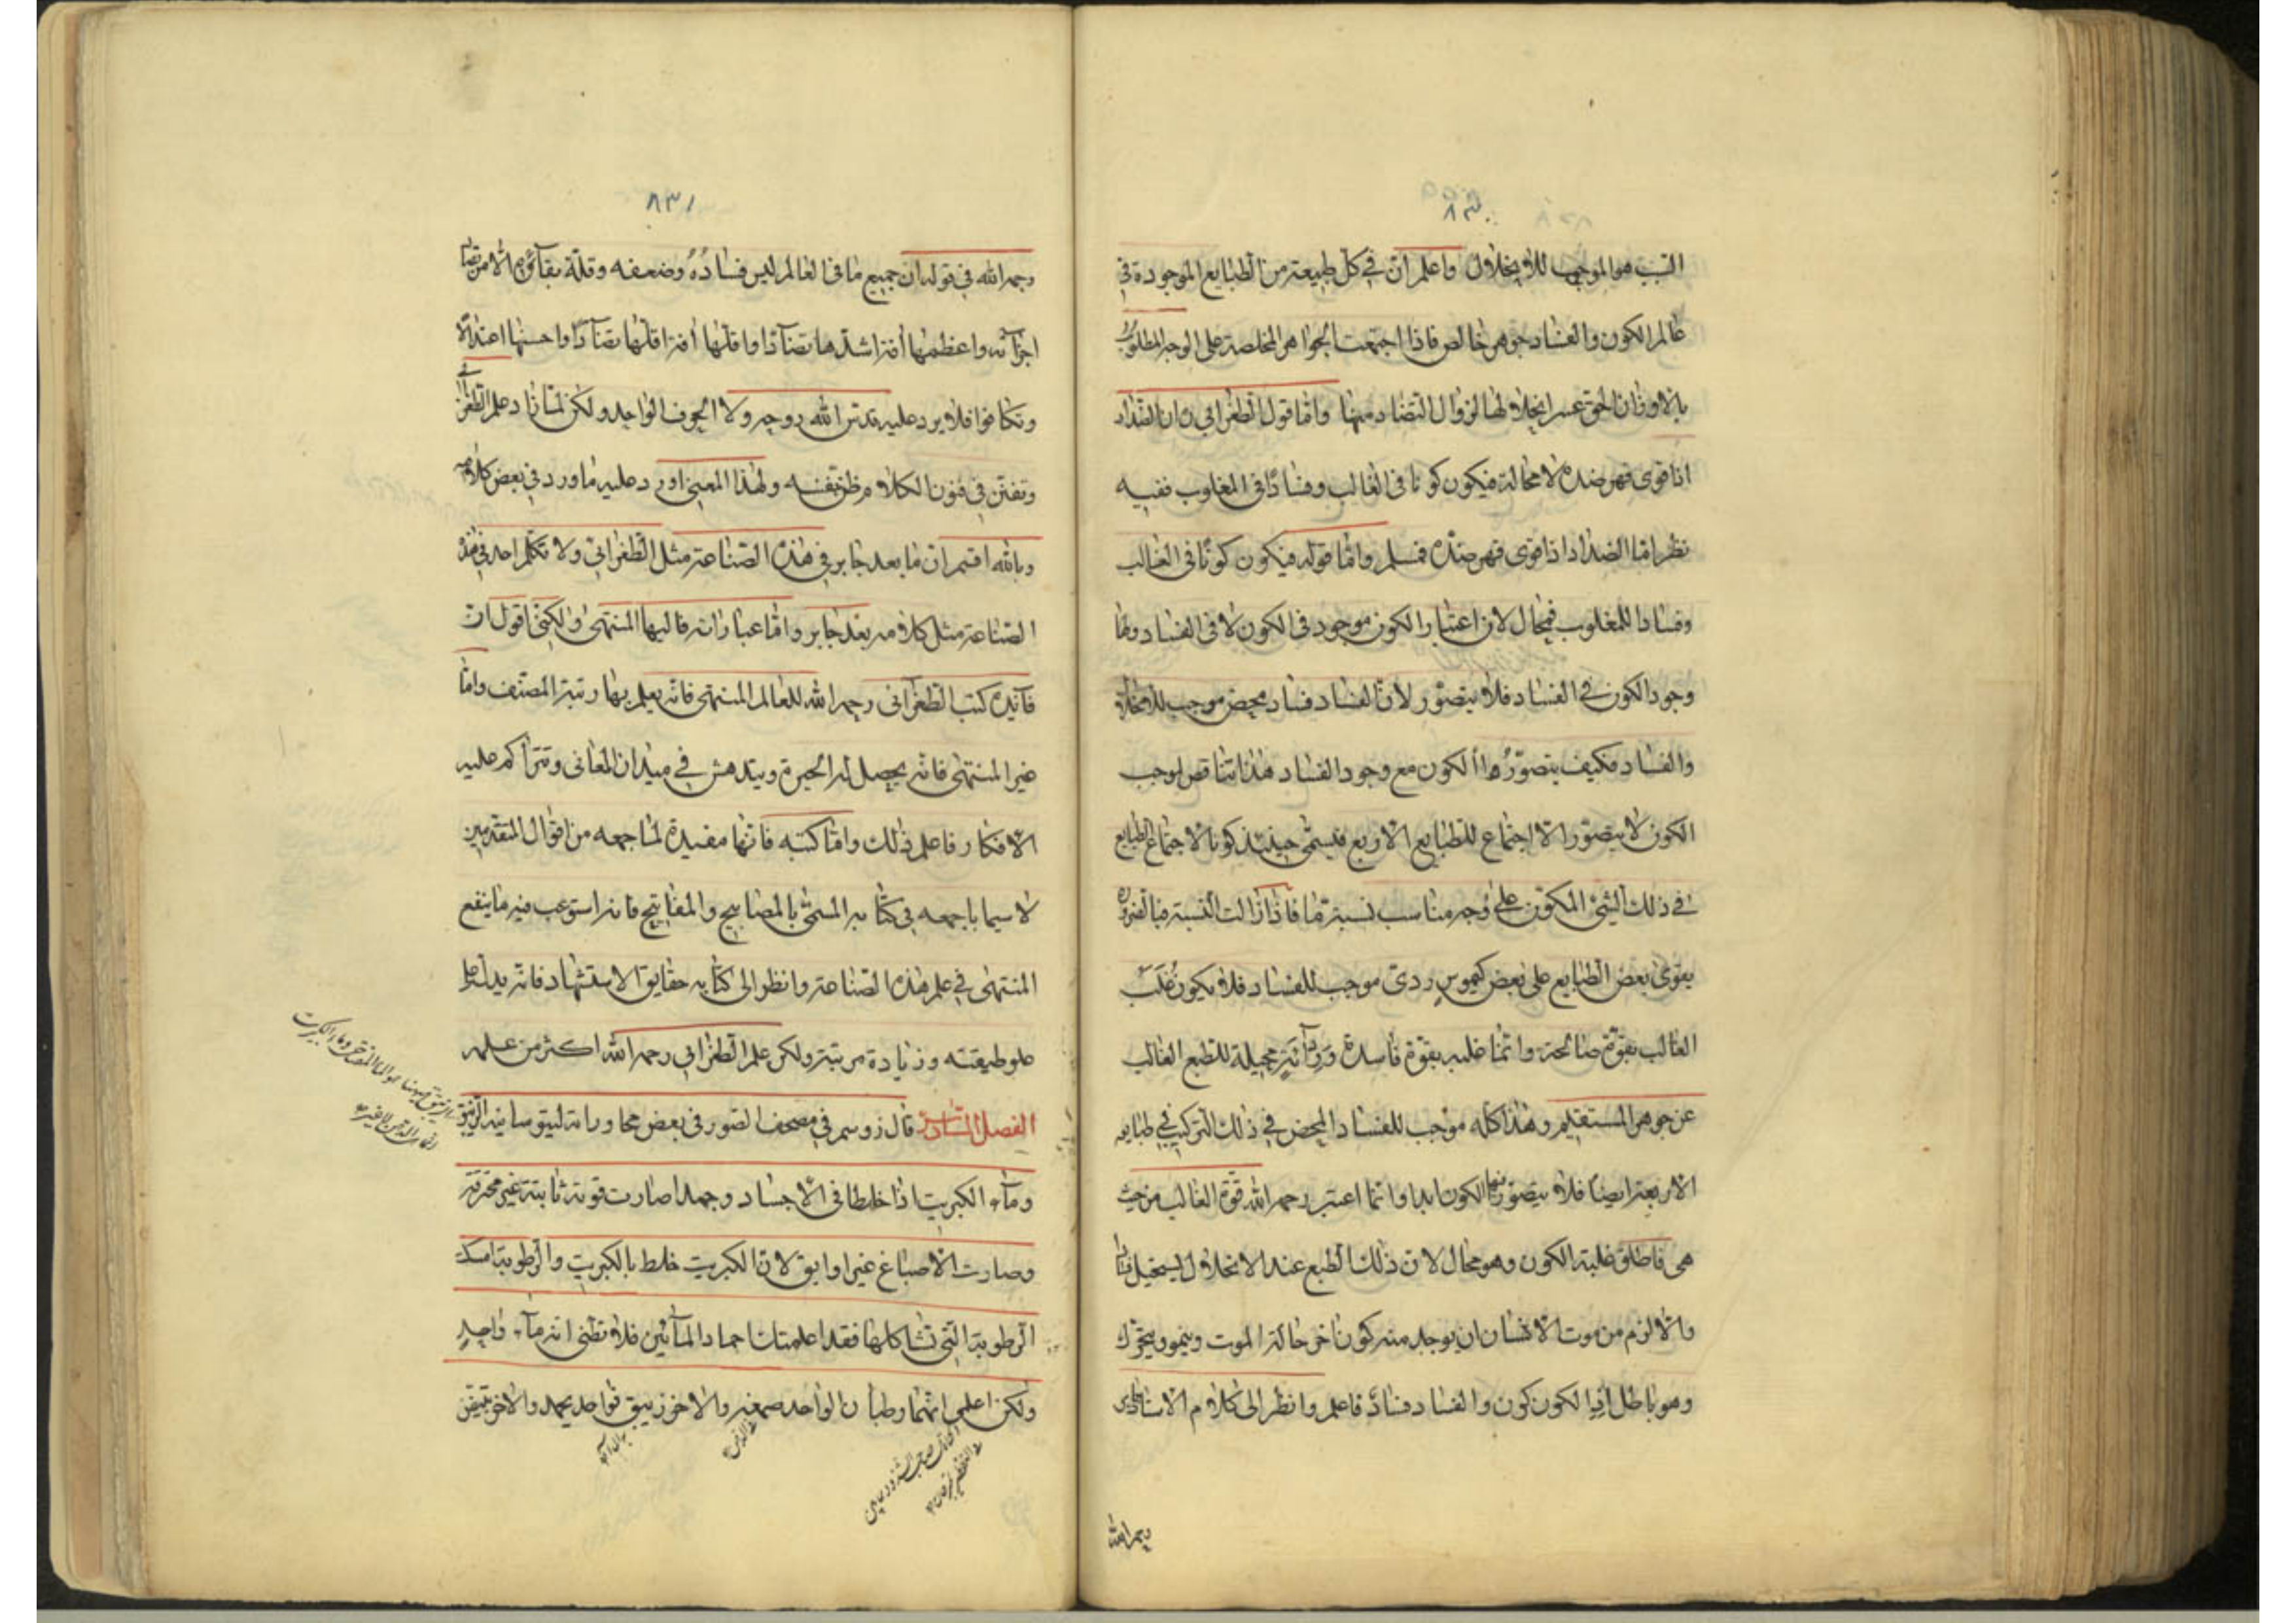 ٨٣٠
السبب هو الموجب للانحلال واعلم ان في كل طبيعة من الطبايع الموجودة في
عالم الكون والفساد جوهر خالص فاذا اجتمعت الجواهر المخلصة على الوجه المطلوب
بالاوزان الحق عسر انحلالها لزوال التضاد منها واما قول الطغرائي ان الضد اد
اذا قوى قهر ضده لا محالة فيكون كونا في الغالب وفسادًا في المغلوب ففيه
نظر اما الضد اذا قوى قهر ضده فمسلم واما قوله فيكون كونًا في الغالب
وفسادا للمغلوب فمحال لان اعتبار الكون موجود في الكون لا في الفساد واما
وجود الكون في الفساد فلا يتصوّر لان الفساد فساد محض موجب للانحلال
والفساد فكيف يتصوّر الكون مع وجود الفساد هذا تناقض لوجب
الكون لا يتصوّر الا اجتماع للطبايع الاربع فيسمى حينئذ كونا لاجتماع الطبايع
في ذلك الشئ المكون على وجه مناسب نسبة ما فاذا زالت النسبة فبالضرورة
يقوى بعض الطبايع على بعض كيموسٍ ردى موجب للفساد فلا يكون غلب
الغالب بقوة صالحة وانما غلبه بقوة فاسدة ورداءة محيلة للطبع الغالب
عن جوهر المستقيم وهذا كله موجب للفساد المحض في ذلك التركيب في طبايعه
الاربعة ايضًا فلا يتصور منها الكون ابدا وانما اعتبر رحمه الله قوة الغالب من حيث
هى فاطلق غلبة الكون وهو محال لان ذلك الطبع عند الانحلال يستحيل فسادا
والا لزم من موت الانسان ان يوجد منه كون اخر حالة الموت وينمو ويتحرك
وهو باطل اذا الكون كون والفساد فسادٌ فاعلم وانظر الى كلام الاستاذ
رحمه الله
٨٣١
رحمه الله في قوله ان جميع ما في العالم ليس فسادُهُ وضعفه وقلة بقائه الا من تضاد
اجزائه واعظمها افة اشدّها تضآدًا واقلّها افة اقلّها تضآدًا واحسنها اعتدالا
وتكافوا فلا يرد عليه قدس الله روحه ولا الحرف الواحد ولكن لما زاد علم الطغرائي
وتفنن في فنون الكلام وبهذا المعنى اورد عليه ما ورد في بعض كلامه
وبالله اقسم ان ما بعد جابر في هذه الصناعة مثل الطغرائي ولا تكلم احد في هذه
الصناعة مثل كلامه بعد جابر واما عباراته فاليها المنتهى ولكنى اقول ان
فآئدة كتب الطغرآئى رحمه الله للعالم المنتهى فانه يعلم بها رتبة المصنف واما
غير المنتهى فانه يحصل له الحيرة ويندهش في ميدان المعانى وتتراكم عليه
الافكار فاعلم ذلك واما كتبه فانها مفيدة لما جمعه من اقوال المتقدمين
لا سيما ما جمعه في كتابه المسمى بالمصابيح والمفاتيح فانه استوعب فيه ما ينفع
المنتهى في علم هذه الصناعة وانظر الى كتابه حقايق الاستشهاد فانه يدلك على
علو طبقته وزيادة مرتبته ولكن علم الطغرائي رحمه الله اكثر من علمه
الفصل السادس قال زوسم في مصحف الصور في بعض محاوراته لثيوسابيه الزيبق
وماء الكبريت اذا خلطا في الاجساد وجمدا صارت قوية ثابتة غير محترقة
وصارت الاصباغ غير اوابق لان الكبريت خلط بالكبريت والرطوبة امسكت
الرطوبة التى تشاكلها فقد اعلمتك اجماد المآئين فلا تظنى انه مآء واحدٍ
ولكن اعلمى انهما رطبان الواحد صمغه والاخر زيبق فواحد يجمد والاخر